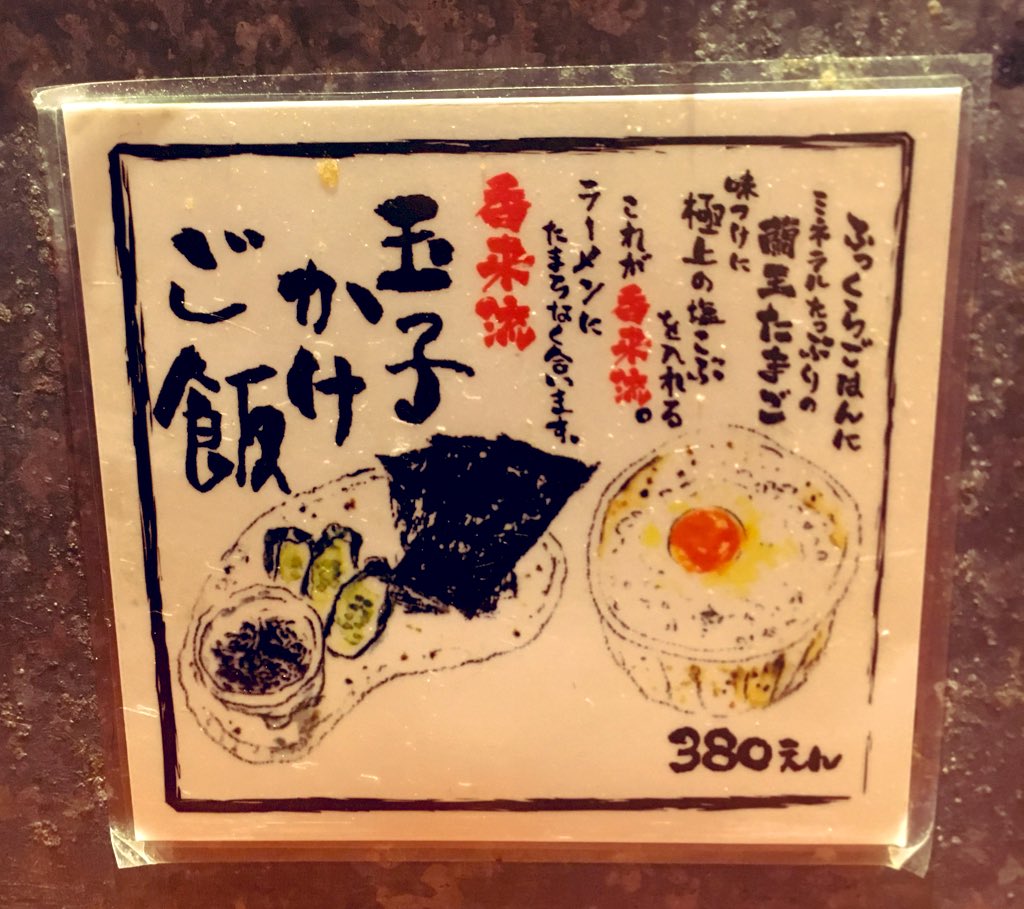 ふっくらごはんに
ミネラルたっぷりの
蘭王たまご
味つけに
極上の塩こぶ
を入れる
これが呑来流。
ラーメンに
たまらなく合います。
呑来流
玉子
かけ
ご飯
380えん